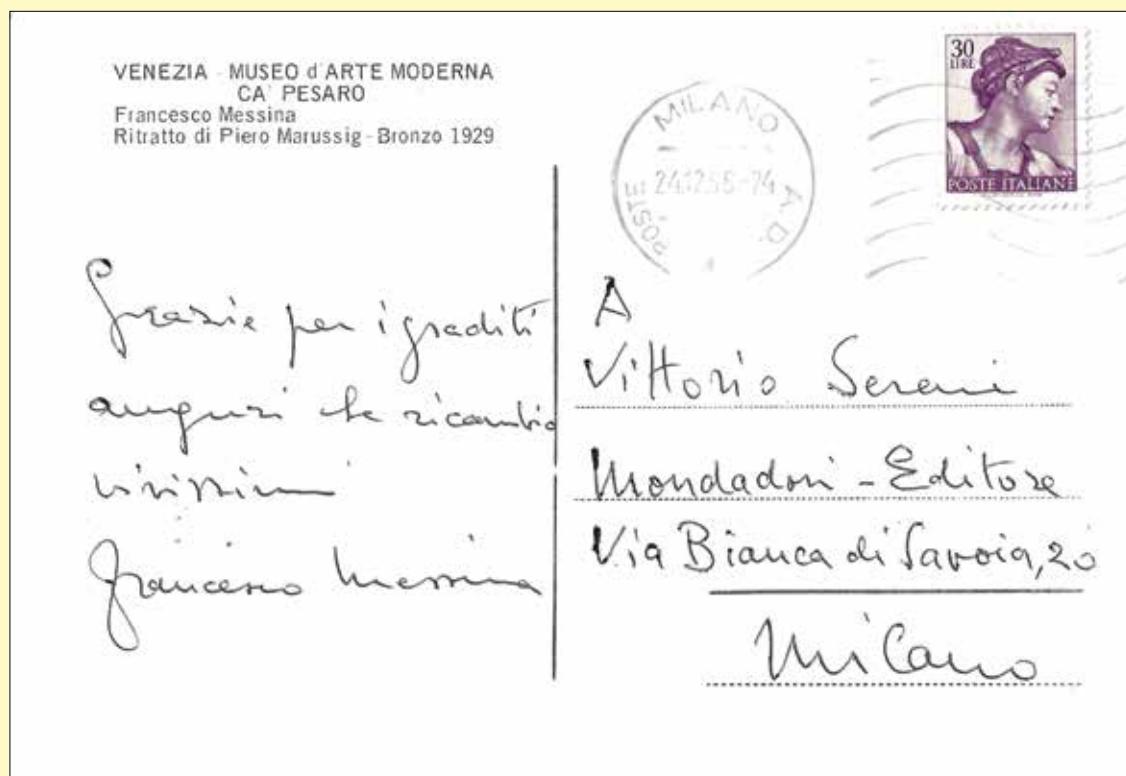 VENEZIA - MUSEO d'ARTE MODERNA
CA' PESARO
Francesco Messina
Ritratto di Piero Marussig - Bronzo 1929
30
LIRE
POSTE ITALIANE
MILANO A.D.
POSTE
Grazie per i graditi
auguri che ricambio
vivissimi
Francesco Messina
A
Vittorio Sereni
Mondadori - Editore
Via Bianca di Savoia, 20
Milano